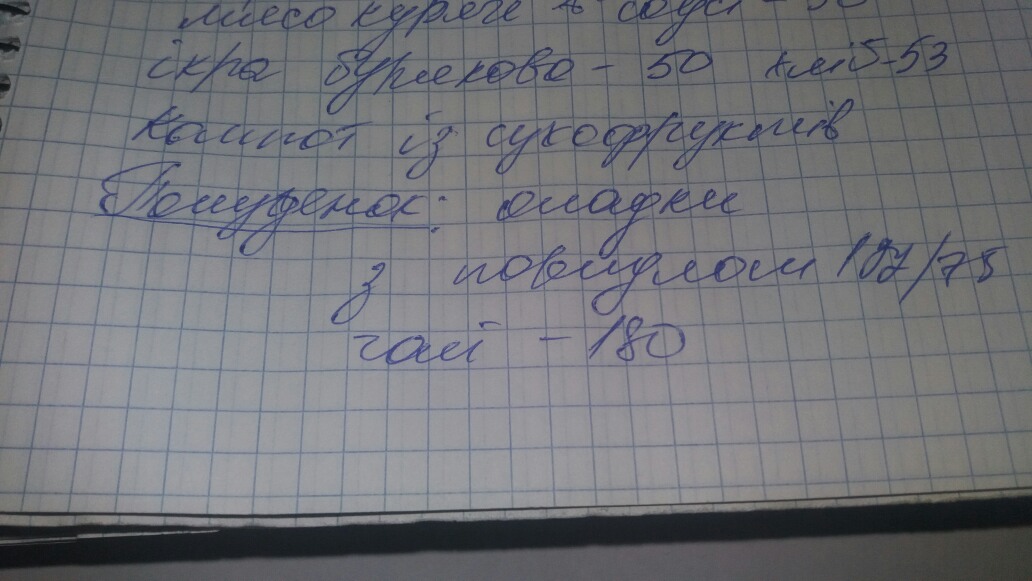 мясо куряче в соусі - 50
ікра бурякова - 50 хліб-53
компот із сухофруктів
Полуденок: оладки
з повидлом 197/75
чай - 180